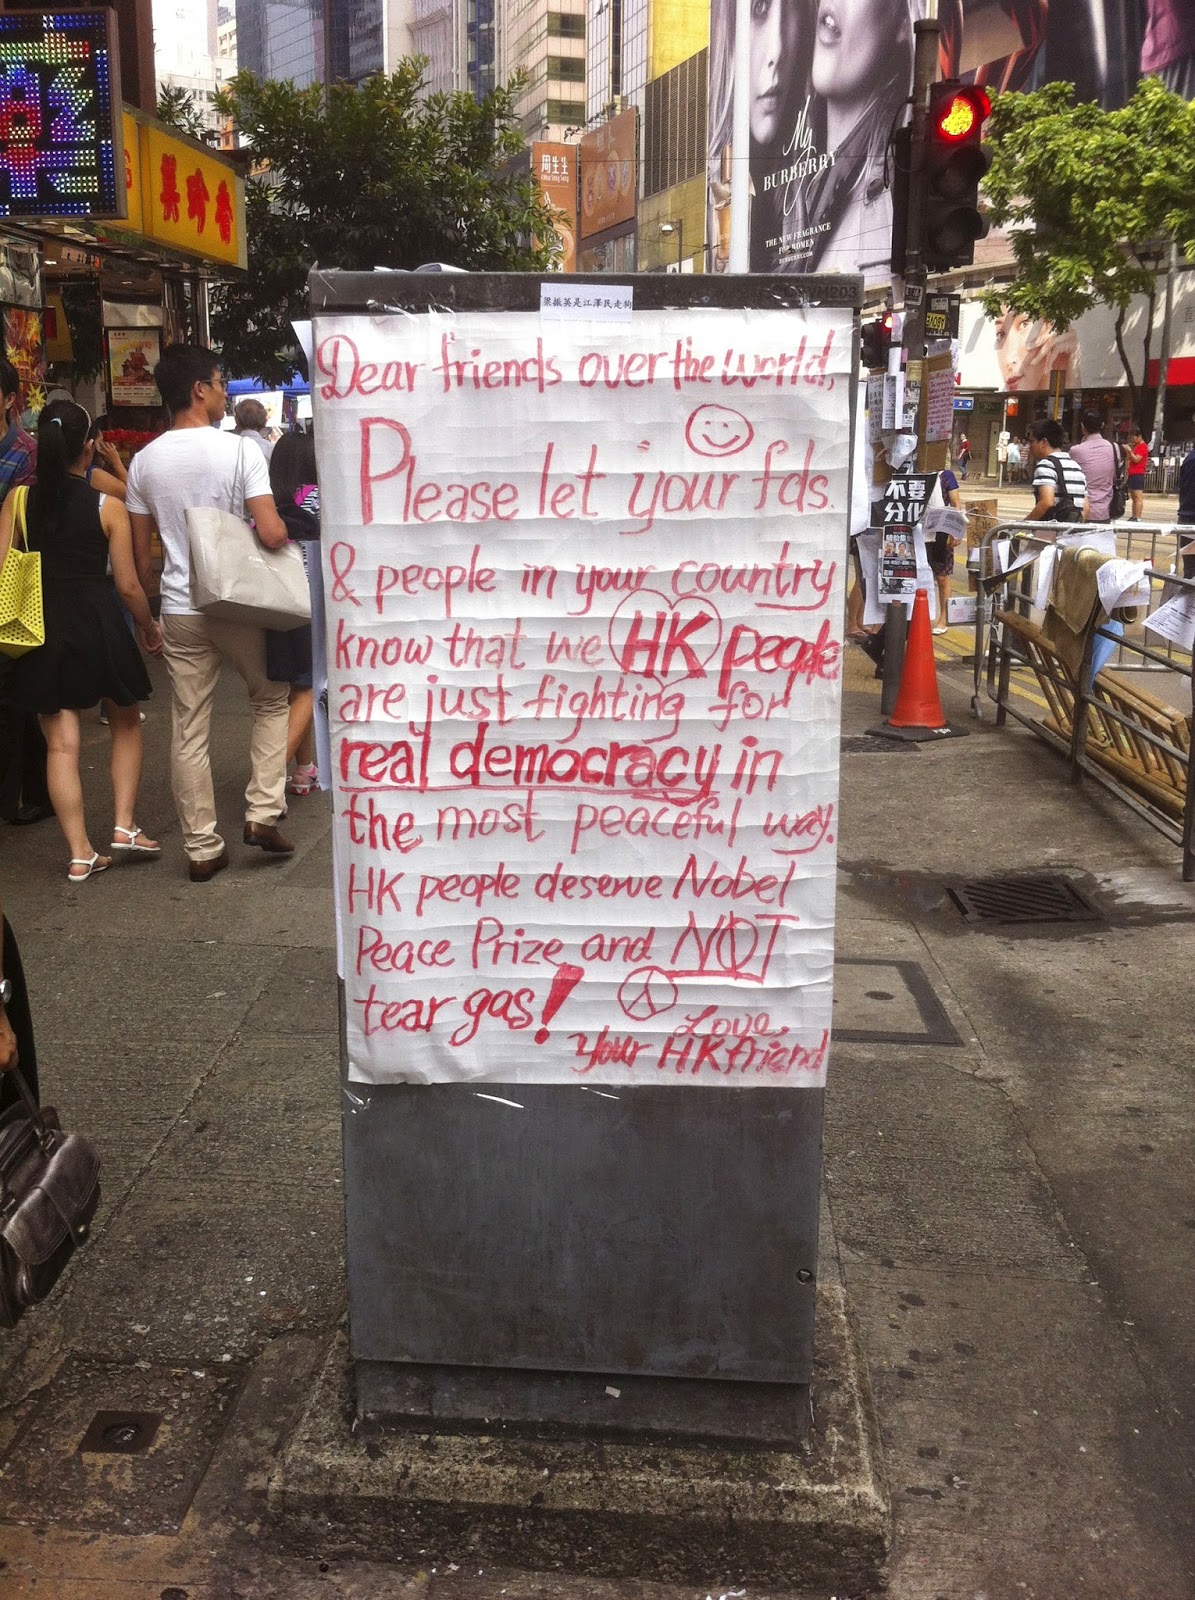 周生生
Chow Sang Sang
My
BURBERRY
THE NEW FRAGRANCE
FOR WOMEN
BURBERRY.COM
梁振英是江澤民走狗
Dear friends over the world,
Please let your fds.
& people in your country
know that we HK people
are just fighting for
real democracy in
the most peaceful way.
HK people deserve Nobel
Peace Prize and NOT
tear gas!
Love,
Your HK friend
不要
分化